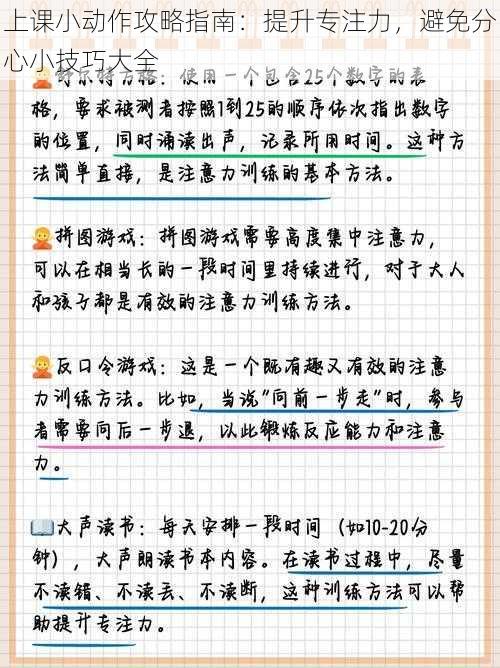 上课小动作攻略指南：提升专注力，避免分
心小技巧大全
舒尔特方格：使用一个包含25个数字的表
格，要求被测者按照1到25的顺序依次指出数字
的位置，同时诵读出声，记录所用时间。这种方
法简单直接，是注意力训练的基本方法。
拼图游戏：拼图游戏需要高度集中注意力，
可以在相当长的一段时间里持续进行，对于大人
和孩子都是有效的注意力训练方法。
反口令游戏：这是一个既有趣又有效的注意
力训练方法。比如，当说"向前一步走"时，参与
者需要向后一步退，以此锻炼反应能力和注意
力。
大声读书：每天安排一段时间（如10-20分
钟），大声朗读书本内容。在读书过程中，尽量
不读错、不读丢、不读断，这种训练方法可以帮
助提升专注力。